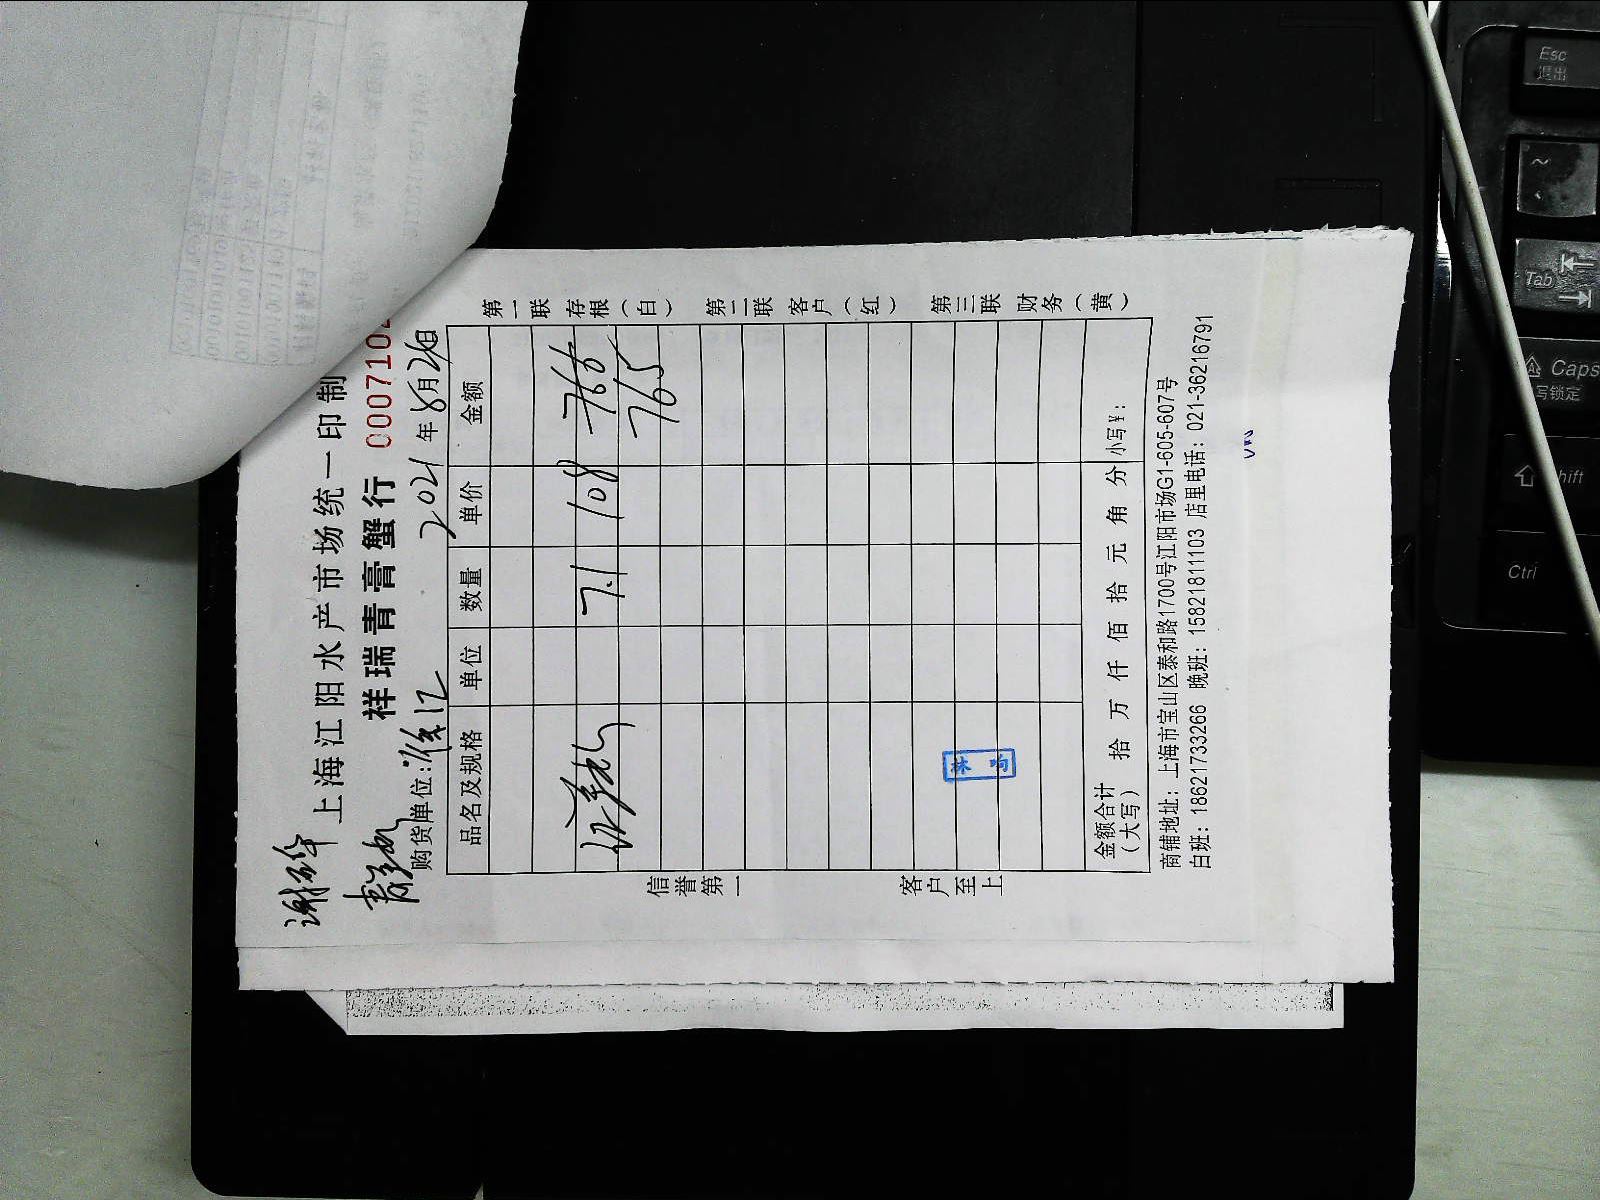 上海江阳水产市场统一印制
祥瑞青膏蟹行 000710
购货单位: 2021年8月2日
品名及规格 单位 数量 单价 金额
7.1 108 766
765
金额合计(大写) 拾 万 仟 佰 拾 元 角 分 小写¥:
商铺地址: 上海市宝山区泰和路1700号江阳市场G1-605-607号
白班: 18621733266 晚班: 15821811103 店里电话: 021-36216791
信誉第一
客户至上
第一联 存根(白)
第二联 客户(红)
第三联 财务(黄)
Esc
退出
~
Tab
Caps
写锁定
hift
Ctrl